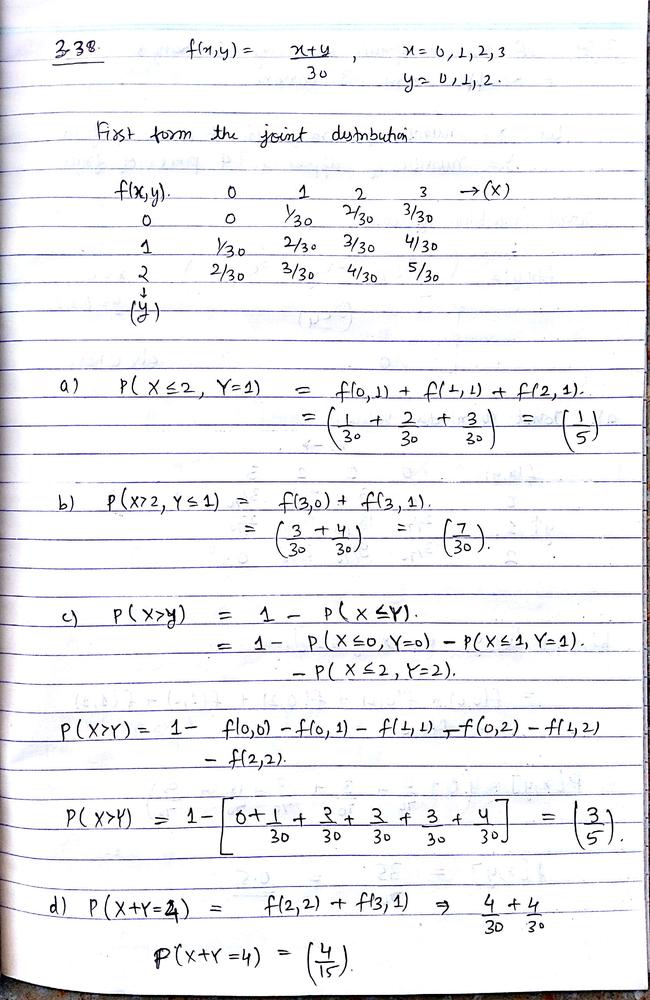 3.38. f(x,y) = x+y/30 , x = 0,1,2,3
y = 0,1,2.
First form the joint distribution.
f(x,y). 0 1 2 3 → (X)
0 0 1/30 2/30 3/30
1 1/30 2/30 3/30 4/30
2 2/30 3/30 4/30 5/30
↓
(y)
a) P( X ≤ 2, Y=1) = f(0,1) + f(1,1) + f(2,1).
= (1/30 + 2/30 + 3/30) = (1/5)
b) P(X>2, Y ≤ 1) = f(3,0) + f(3,1).
= (3/30 + 4/30) = (7/30).
c) P( X>y) = 1 - P( X ≤ Y).
= 1 - P(X ≤ 0, Y=0) - P(X ≤ 1, Y=1).
- P( X ≤ 2, Y=2).
P(X>Y) = 1 - f(0,0) - f(0,1) - f(1,1) - f(0,2) - f(1,2)
- f(2,2).
P( X>Y) = 1 - [0 + 1/30 + 2/30 + 2/30 + 3/30 + 4/30] = (3/5).
d) P(X+Y=4) = f(2,2) + f(3,1) ⇒ 4/30 + 4/30
P(X+Y=4) = (4/15).